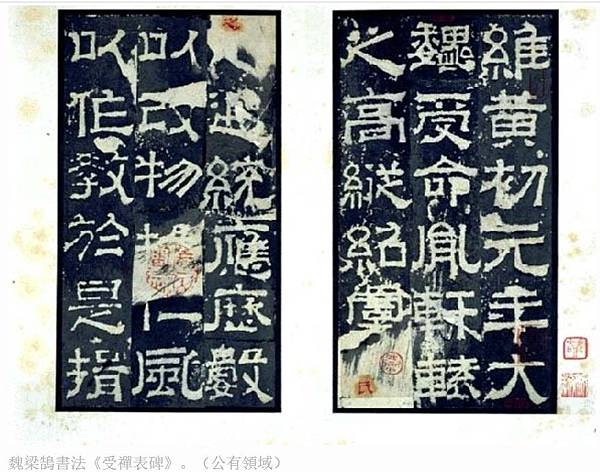 維黃初元年大
魏受命胤軒轅
之高縱紹虞
之遐統應歷數
以改物揚仁風
以作教於是揖
魏梁鵠書法《受禪表碑》。（公有領域）